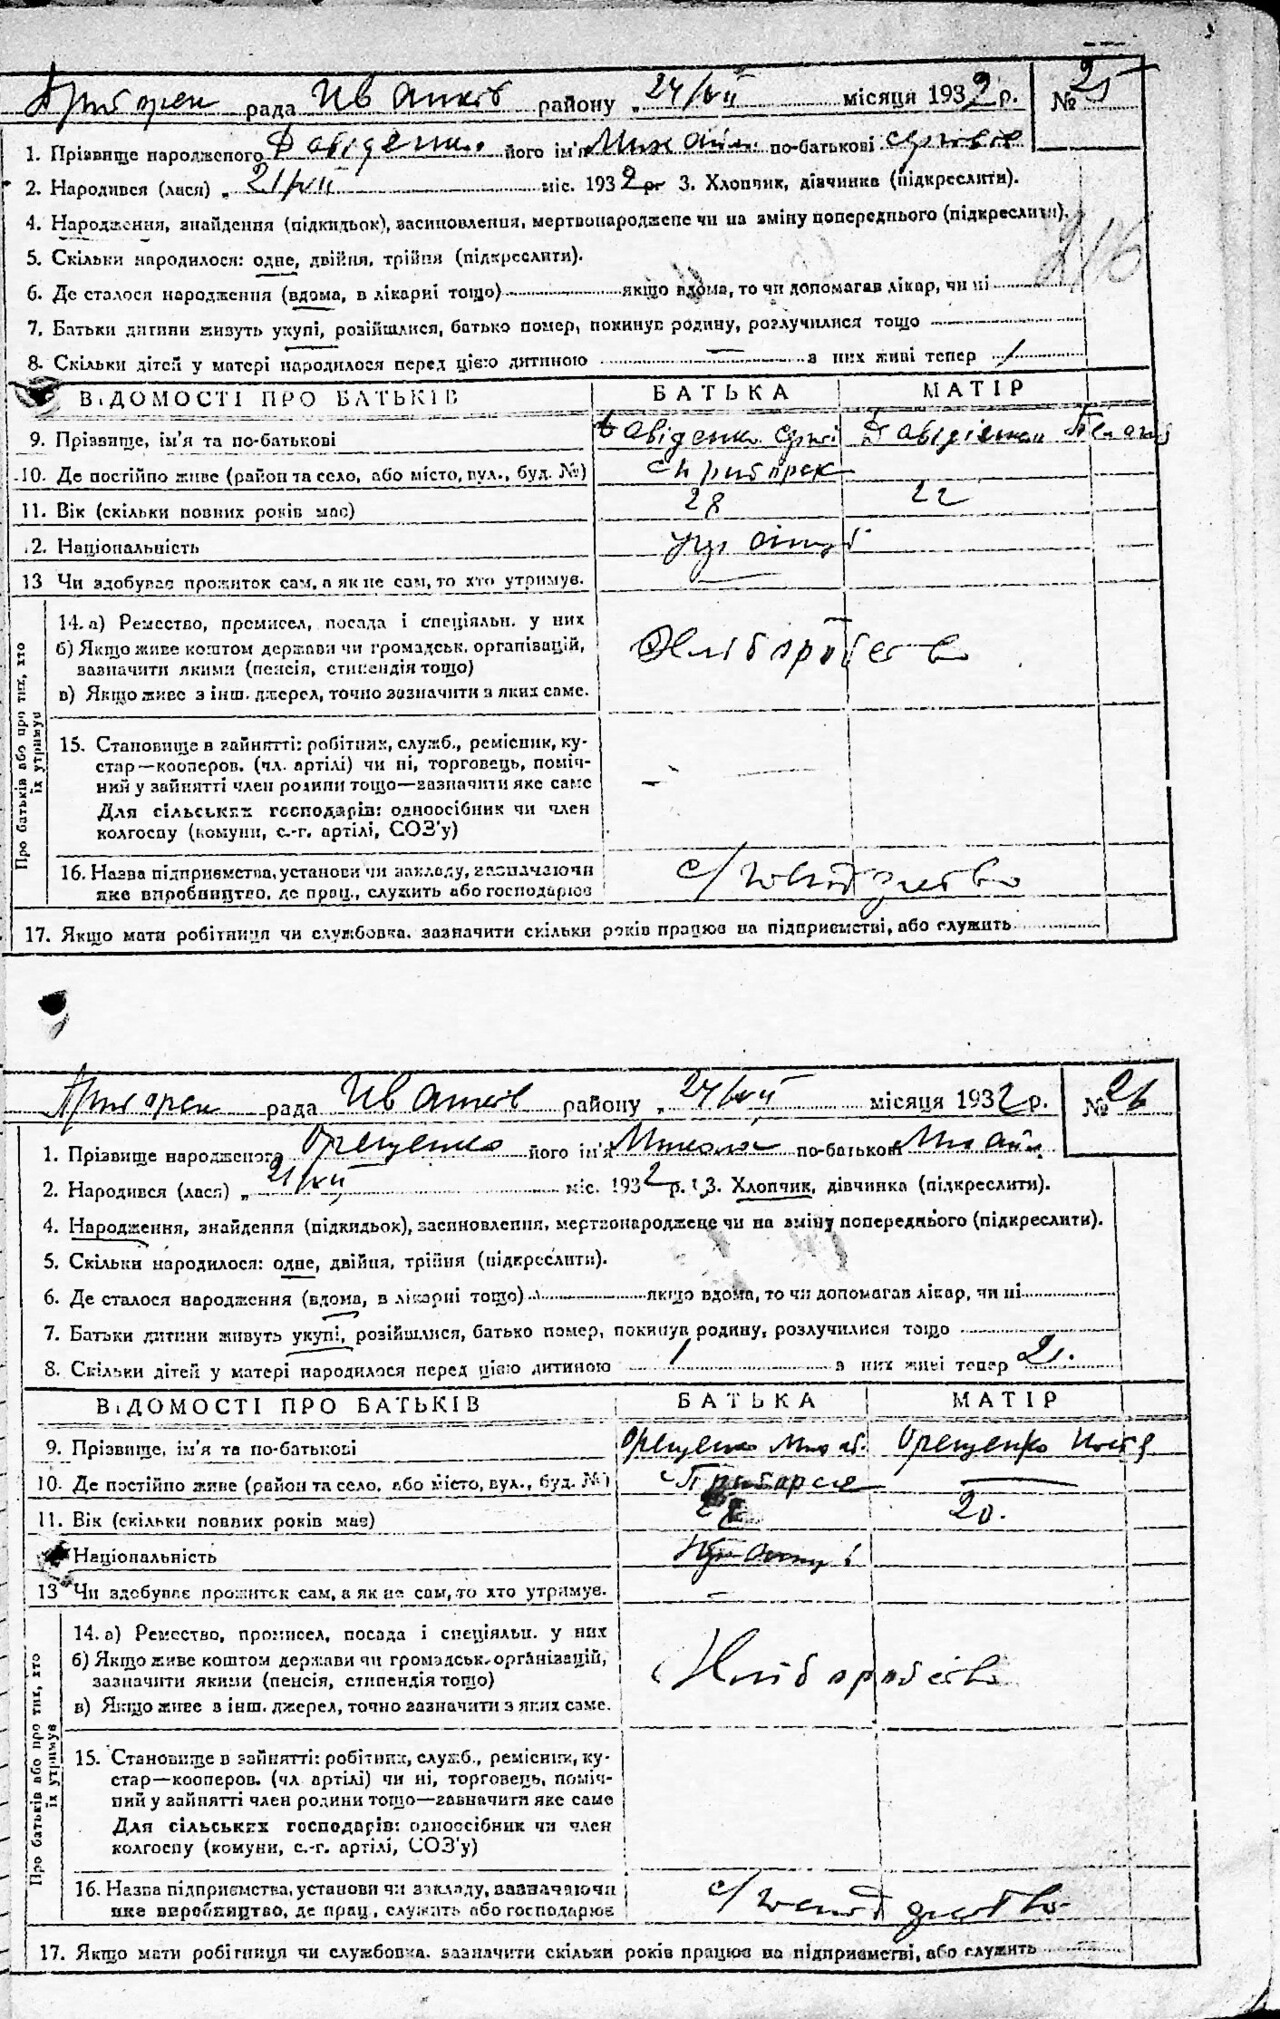 рада Иванків району „24/VII місяця 1932 р. № 25
1. Прізвище народженого Давіденко його ім'я Михайло по-батькові
2. Народився (лася) „ 21/VII міс. 1932 р. 3. Хлопчик, дівчинка (підкреслити).
4. Народження, знайдення (підкидьок), засиновлення, мертвонароджене чи на зміну попереднього (підкреслити).
216
5. Скільки народилося: одне, двійня, трійня (підкреслити).
6. Де сталося народження (вдома, в лікарні тощо) якщо вдома, то чи допомагав лікар, чи ні
7. Батьки дитини живуть укупі, розійшлися, батько помер, покинув родину, розлучилися тощо
8. Скільки дітей у матері народилося перед цією дитиною — з них живі тепер 1
ВІДОМОСТІ ПРО БАТЬКІВ БАТЬКА МАТІР
9. Прізвище, ім'я та по-батькові Давіденко
10. Де постійно живе (район та село, або місто, вул., буд. №)
11. Вік (скільки повних років має) 28 22
12. Національність
13 Чи здобуває прожиток сам, а як не сам, то хто утримує. —
Про батьків або про тих, хто їх утримує
14. а) Ремество, промисел, посада і спеціяльн. у них
б) Якщо живе коштом держави чи громадськ. організацій,
зазначити якими (пенсія, стипендія тощо)
Хліборобство
в) Якщо живе з інш. джерел, точно зазначити з яких саме.
15. Становище в зайнятті: робітник, служб., ремісник, ку-
стар—кооперов. (чл. артілі) чи ні, торговець, поміч-
ний у зайнятті член родини тощо—зазначити яке саме
Для сільських господарів: одноосібник чи член
колгоспу (комуни, с.-г. артілі, СОЗ'у)
16. Назва підприємства, установи чи закладу, зазначаючи
яке виробництво, де прац., служить або господарює
17. Якщо мати робітниця чи службовка, зазначити скільки років працює на підприємстві, або служить
рада Иванків району „ 24/VII місяця 1932 р. № 26
1. Прізвище народженого Орещенко його ім'я Микола по-батькові
2. Народився (лася) „ 21/VII міс. 1932 р. 3. Хлопчик, дівчинка (підкреслити).
4. Народження, знайдення (підкидьок), засиновлення, мертвонароджене чи на зміну попереднього (підкреслити).
5. Скільки народилося: одне, двійня, трійня (підкреслити).
6. Де сталося народження (вдома, в лікарні тощо) якщо вдома, то чи допомагав лікар, чи ні
7. Батьки дитини живуть укупі, розійшлися, батько помер, покинув родину, розлучилися тощо
8. Скільки дітей у матері народилося перед цією дитиною 1 з них живі тепер 2.
ВІДОМОСТІ ПРО БАТЬКІВ БАТЬКА МАТІР
9. Прізвище, ім'я та по-батькові Орещенко Орещенко
10. Де постійно живе (район та село, або місто, вул., буд. №) —
11. Вік (скільки повних років має) 20.
Національність
13 Чи здобуває прожиток сам, а як не сам, то хто утримує. —
Про батьків або про тих, хто їх утримує
14. а) Ремество, промисел, посада і спеціяльн. у них
б) Якщо живе коштом держави чи громадськ. організацій,
зазначити якими (пенсія, стипендія тощо)
Хліборобство
в) Якщо живе з інш. джерел, точно зазначити з яких саме.
15. Становище в зайнятті: робітник, служб., ремісник, ку-
стар—кооперов. (чл артілі) чи ні, торговець, поміч-
ний у зайнятті член родини тощо—зазначити яке саме
Для сільських господарів: одноосібник чи член
колгоспу (комуни, с.-г. артілі, СОЗ'у)
16. Назва підприємства, установи чи закладу, зазначаючи
яке виробництво, де прац., служить або господарює
17. Якщо мати робітниця чи службовка, зазначити скільки років працює на підприємстві, або служить